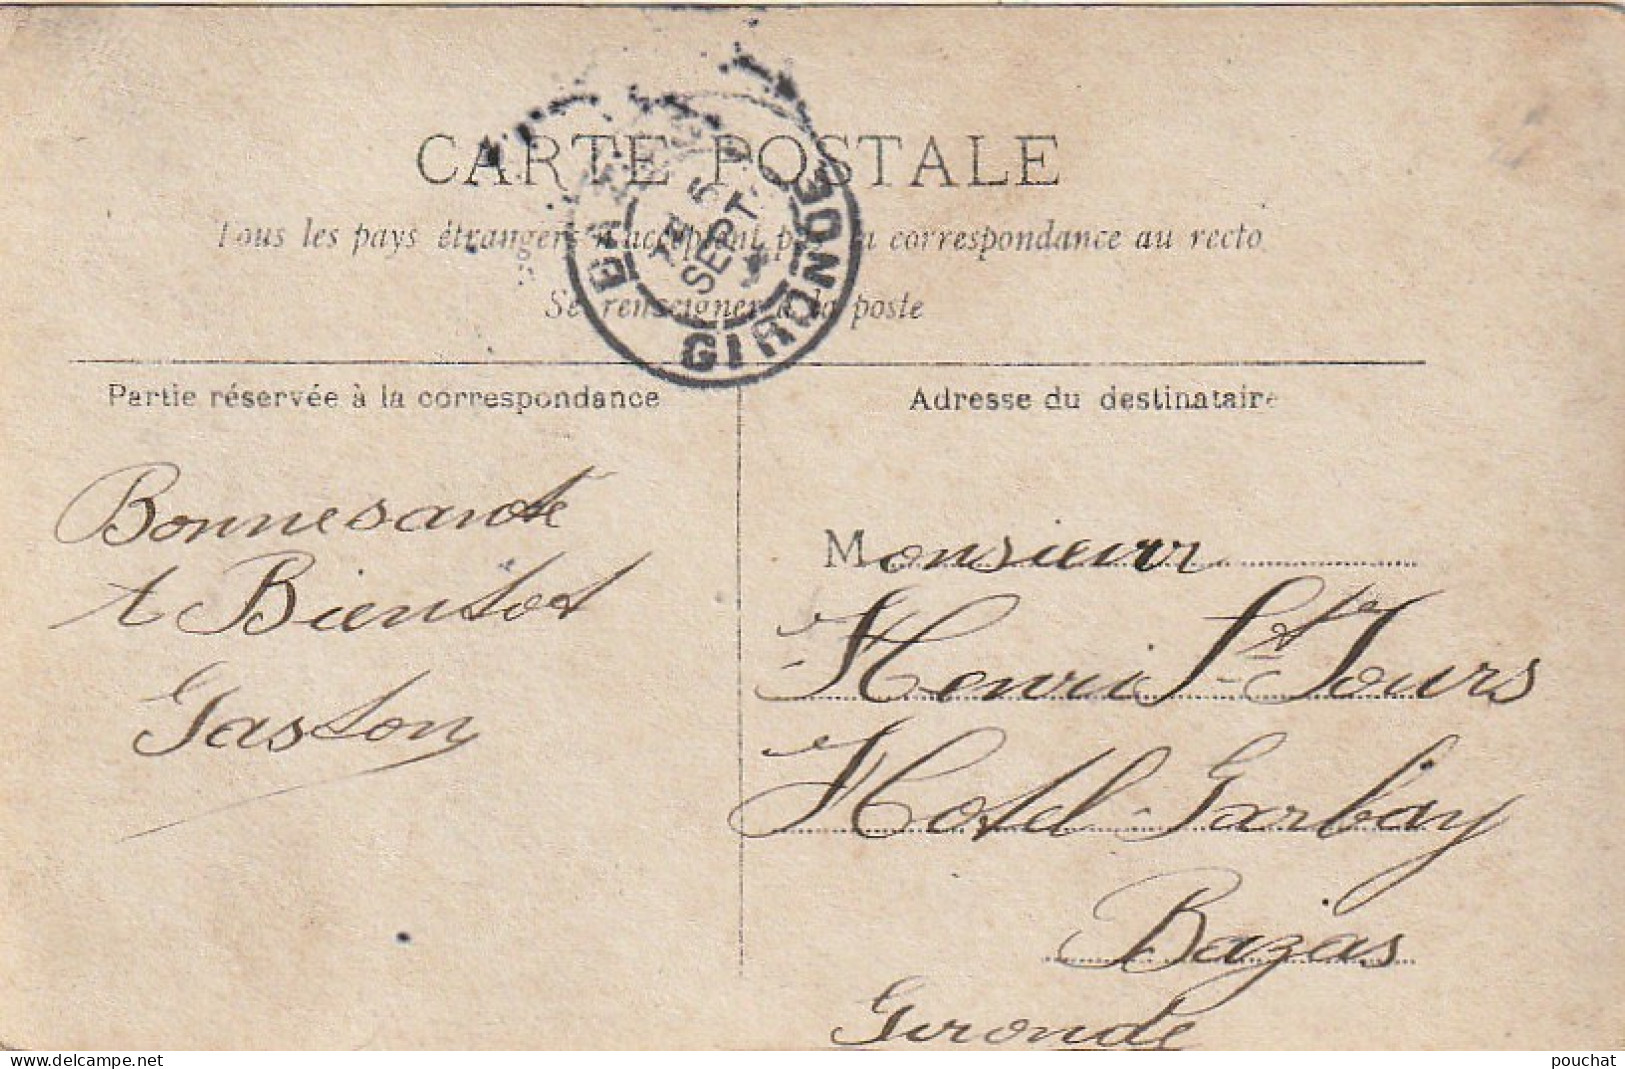 CARTE POSTALE
Tous les pays étrangers n'acceptent pas la correspondance au recto
Se renseigner à la poste
BA
7E 5
SEPT
GIRONDE
Partie réservée à la correspondance
Adresse du destinataire
Bonne sante
A Bientot
Gaston
Monsieur
Henri St Jours
Hotel Garbay
Bazas
Gironde
www.delcampe.net
pouchat